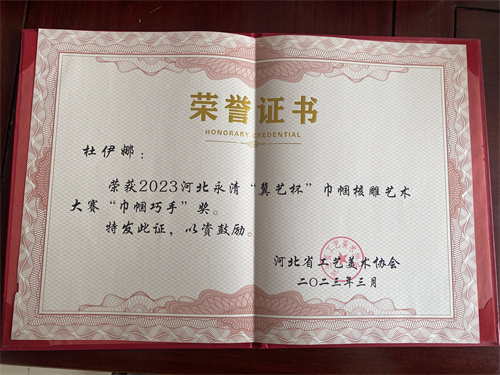 荣誉证书
HONORARY CREDENTIAL
杜伊娜：
荣获2023河北永清“冀艺杯”巾帼核雕艺术
大赛“巾帼巧手”奖。
特发此证，以资鼓励。
河北省工艺美术协会
二〇二三年三月